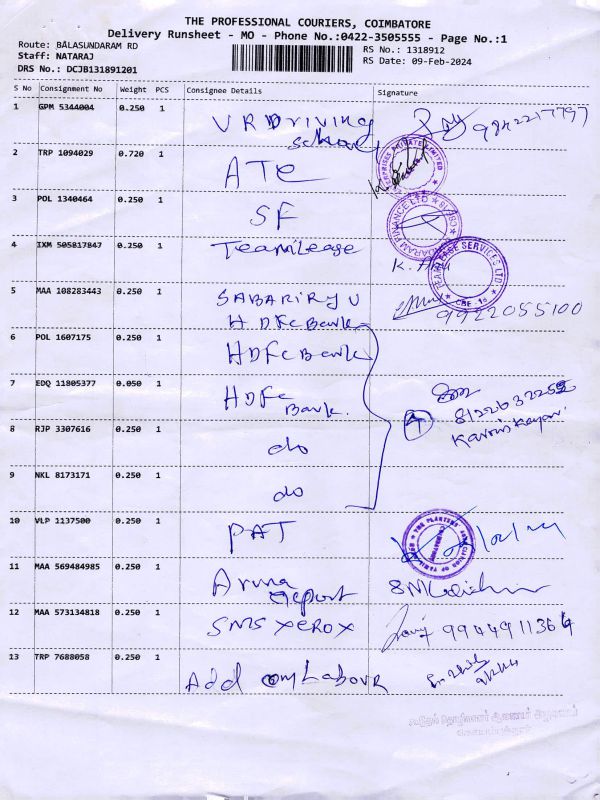 THE PROFESSIONAL COURIERS, COIMBATORE
Delivery Runsheet - MO - Phone No.:0422-3505555 - Page No.:1
Route: BALASUNDARAM RD
Staff: NATARAJ
DRS No.: DCJB131891201
RS No.: 1318912
RS Date: 09-Feb-2024
S No Consignment No Weight PCS Consignee Details Signature
1 GPM 5344004 0.250 1 VR Driving School 9842217797
2 TRP 1094029 0.720 1 ATC
3 POL 1340464 0.250 1 SF
SUNDARAM FINANCE LTD
4 IXM 505817847 0.250 1 TeamLease
TEAMLEASE SERVICES LTD
CBE - 18
5 MAA 108283443 0.250 1 SABARIRYU 9922055100
HDFC Bank
6 POL 1607175 0.250 1 HDFC Bank
7 EDQ 11805377 0.050 1 HDFC Bank.
8122632252
8 RJP 3307616 0.250 1 do
9 NKL 8173171 0.250 1 do
10 VLP 1137500 0.250 1 PAT
THE PLANTERS' ASSOCIATION OF TAMILNADU
11 MAA 569484985 0.250 1 Aruna
12 MAA 573134818 0.250 1 SMS XEROX 9944911364
13 TRP 7688058 0.250 1 Add Com Labour